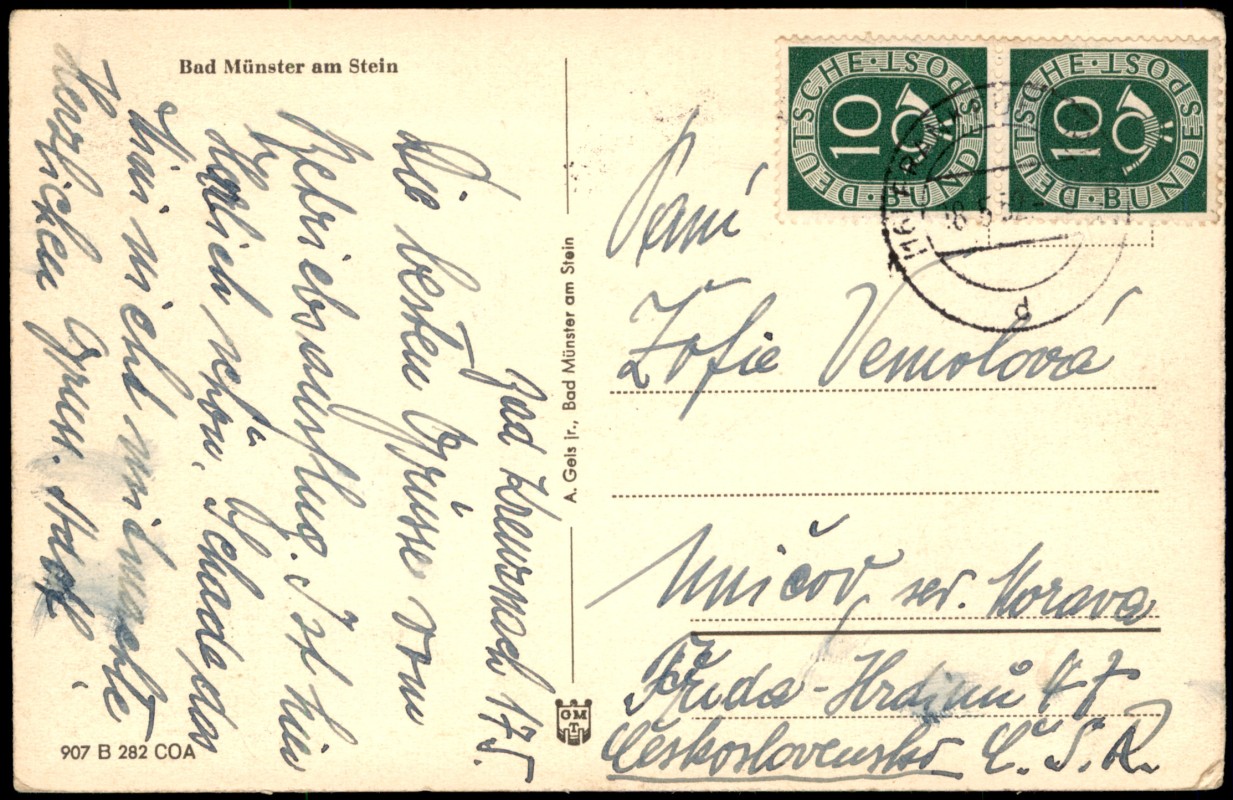 Bad Münster am Stein
Bad Kreuznach 17.5.
Die besten Grüsse vom
Betriebsausflug. Ist hier
Herlich schön, Schade das
Herzlichen Gruss.
A. Gels jr., Bad Münster am Stein
907 B 282 COA
GM
DEUTSCHE · BUNDESPOST ·
10
DEUTSCHE · BUNDESPOST ·
10
18.5.52
d
Paní
Žofie Vemolová
Uničov sev. Morava
Třída-Hrdinů 47
Československo Č.S.R.